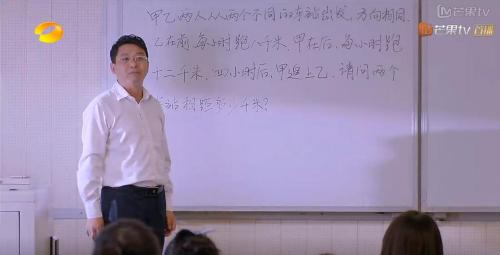 芒果tv
芒果tv
首播
甲乙两人从两个不同的车站出发,方向相同.
乙在前,每小时跑八千米,甲在后,每小时跑
十二千米,四小时后,甲追上乙,请问两个
车站相距多少千米?